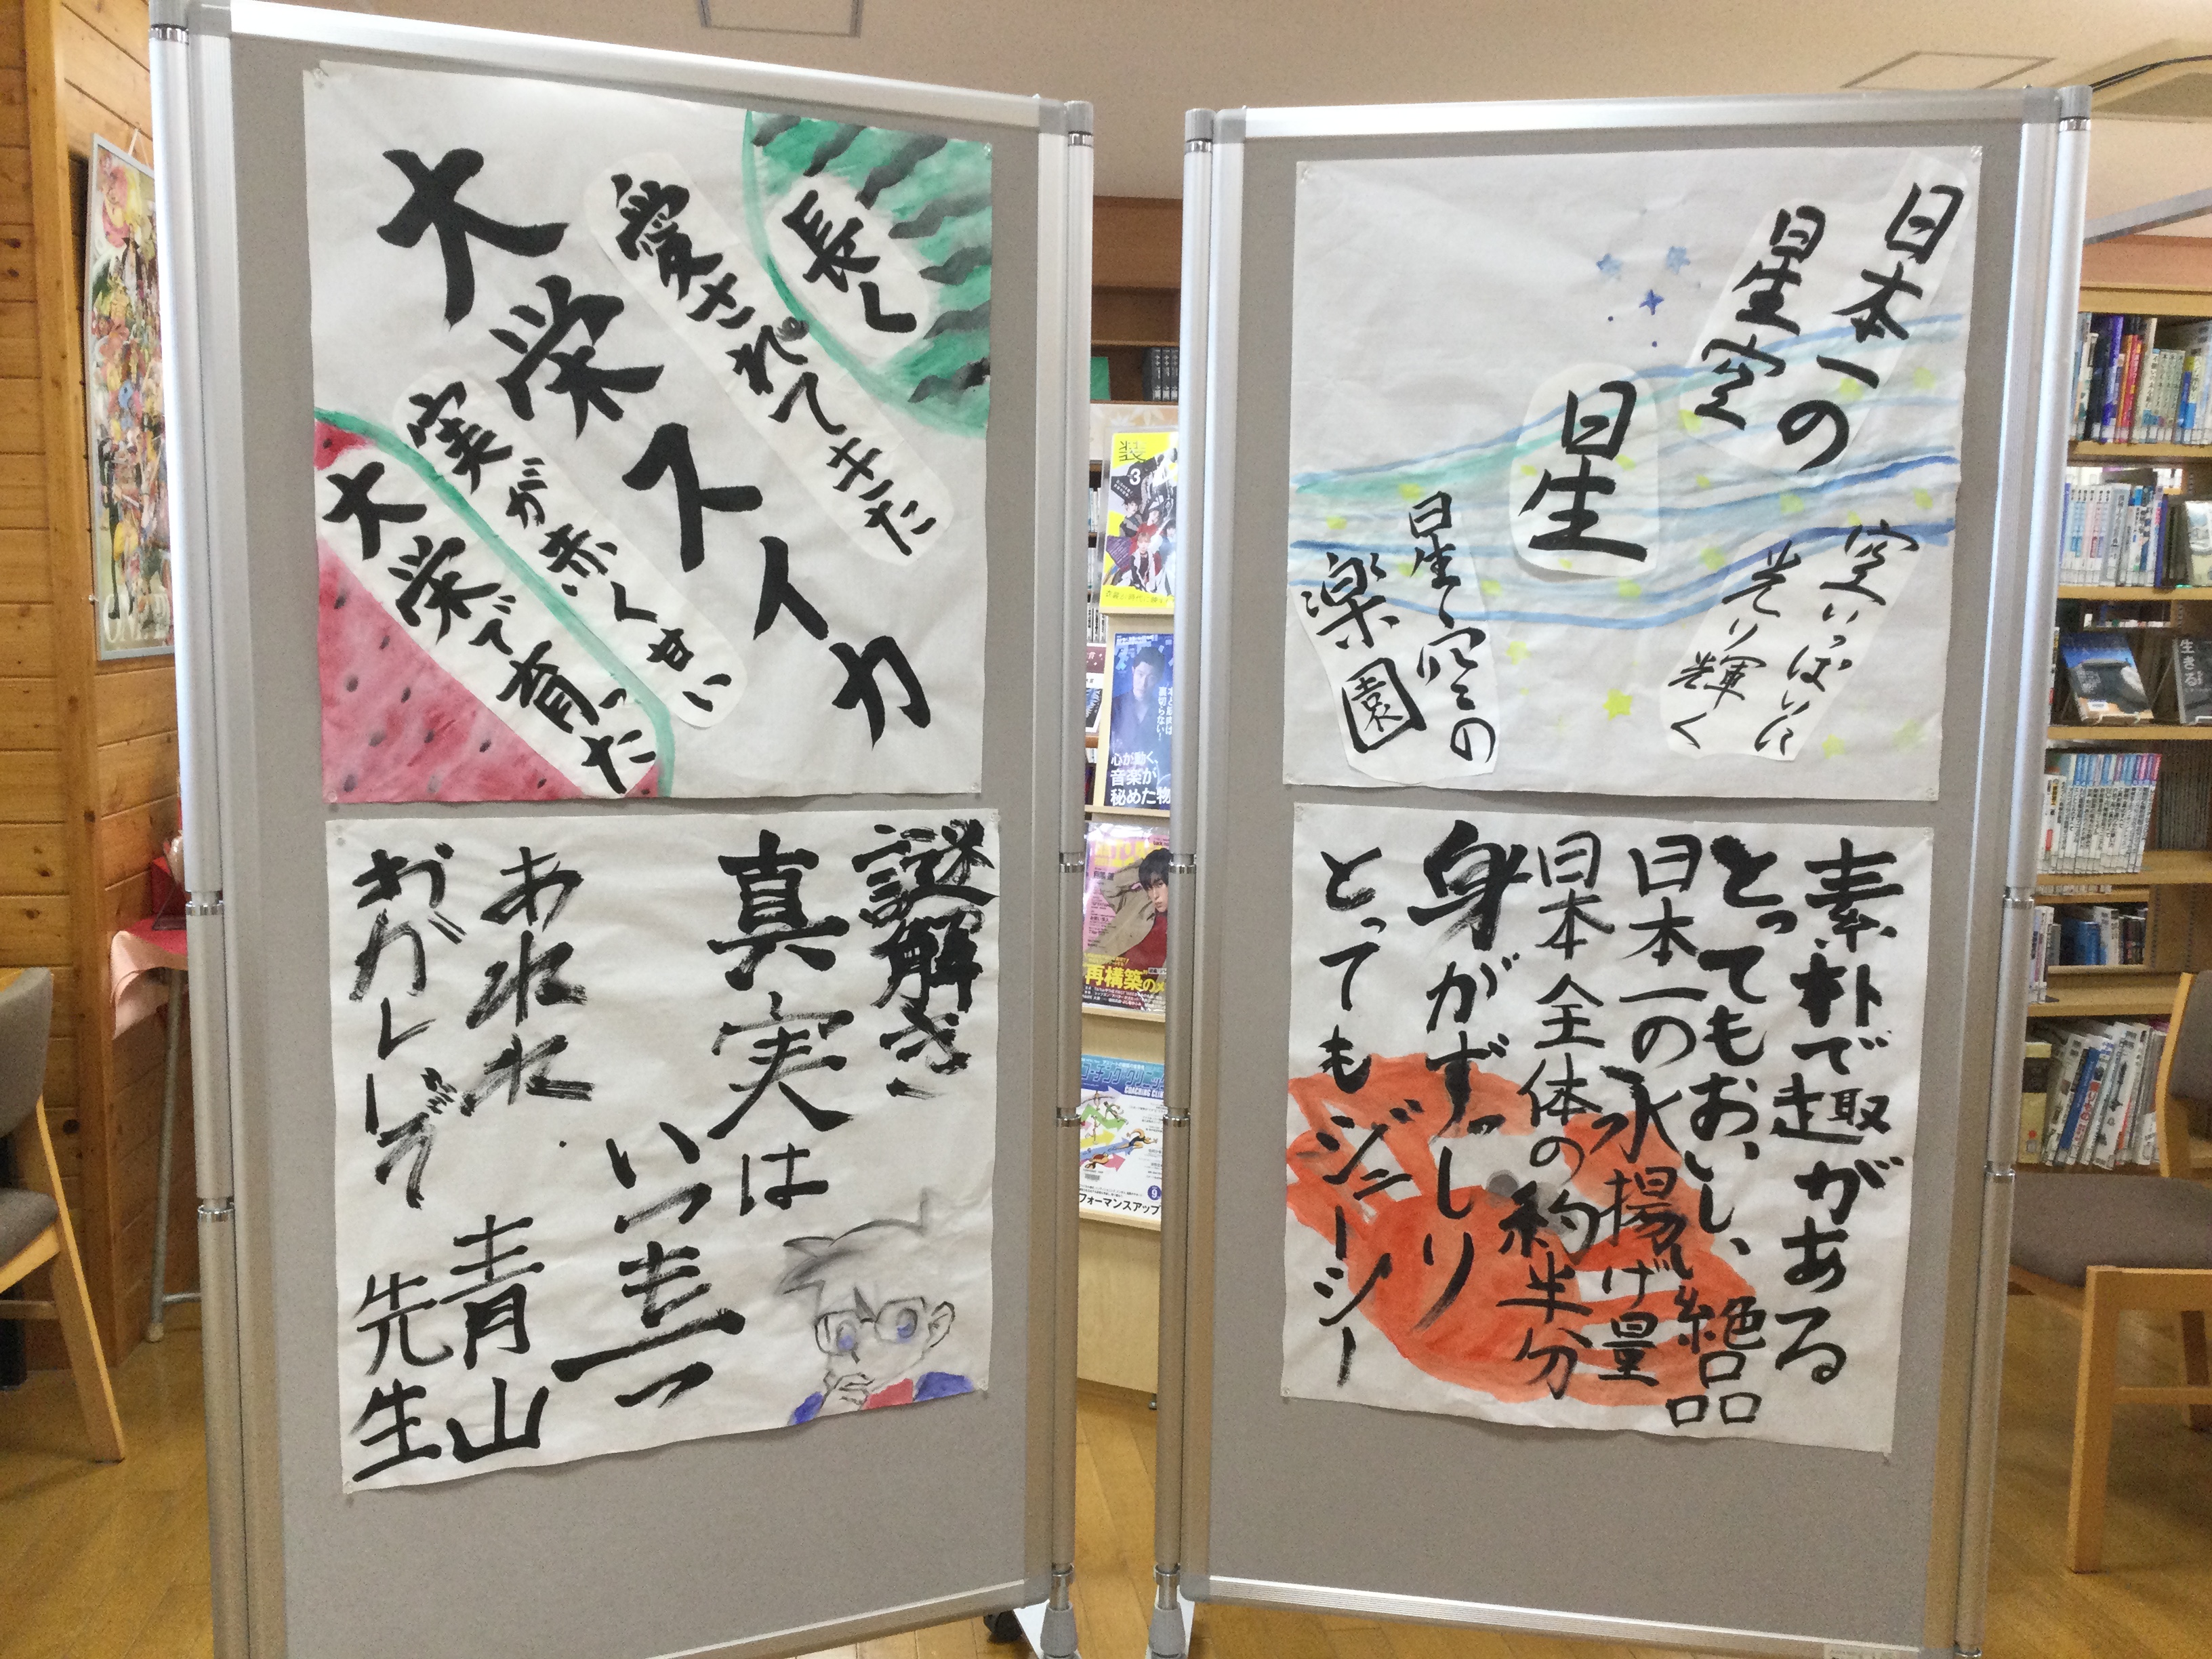 長く
愛されてきた
大栄スイカ
実が赤くせい
大栄で育った
謎解き
真実は
いつも一つ
あれれ
おかしいぞ
青山
先生
日本一の
星空
星
空いっぱいに
光り輝く
星空の
楽園
素朴で趣がある
とってもおいしい、絶品
日本一の水揚げ量
日本全体の約半分
身がずっしり
とってもジューシー
装
3
心が動く、
音楽が
秘めた物
再構築の
コーチング・クリニック
COACHING CLIN
フォーマンスアップ
生きる